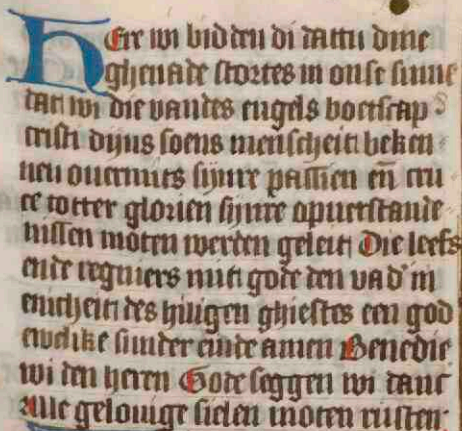 HEre wi bidden di dattu dine
ghenade stortes in onse sinne
dat wi die vandes engels boetscap
cristi dijns soens menscheit beken
nen ouermits sijnre passien en̄ cru
ce totter glorien sijnre opuerstande
nissen moten werden geleit Die leefs
ende regniers mit gode den vad' in
enicheit des hiligen ghiestes een god
ewelike sunder einde amen Benedie
wi den heren Gode seggen wi danc
Alle gelouige sielen moten rusten